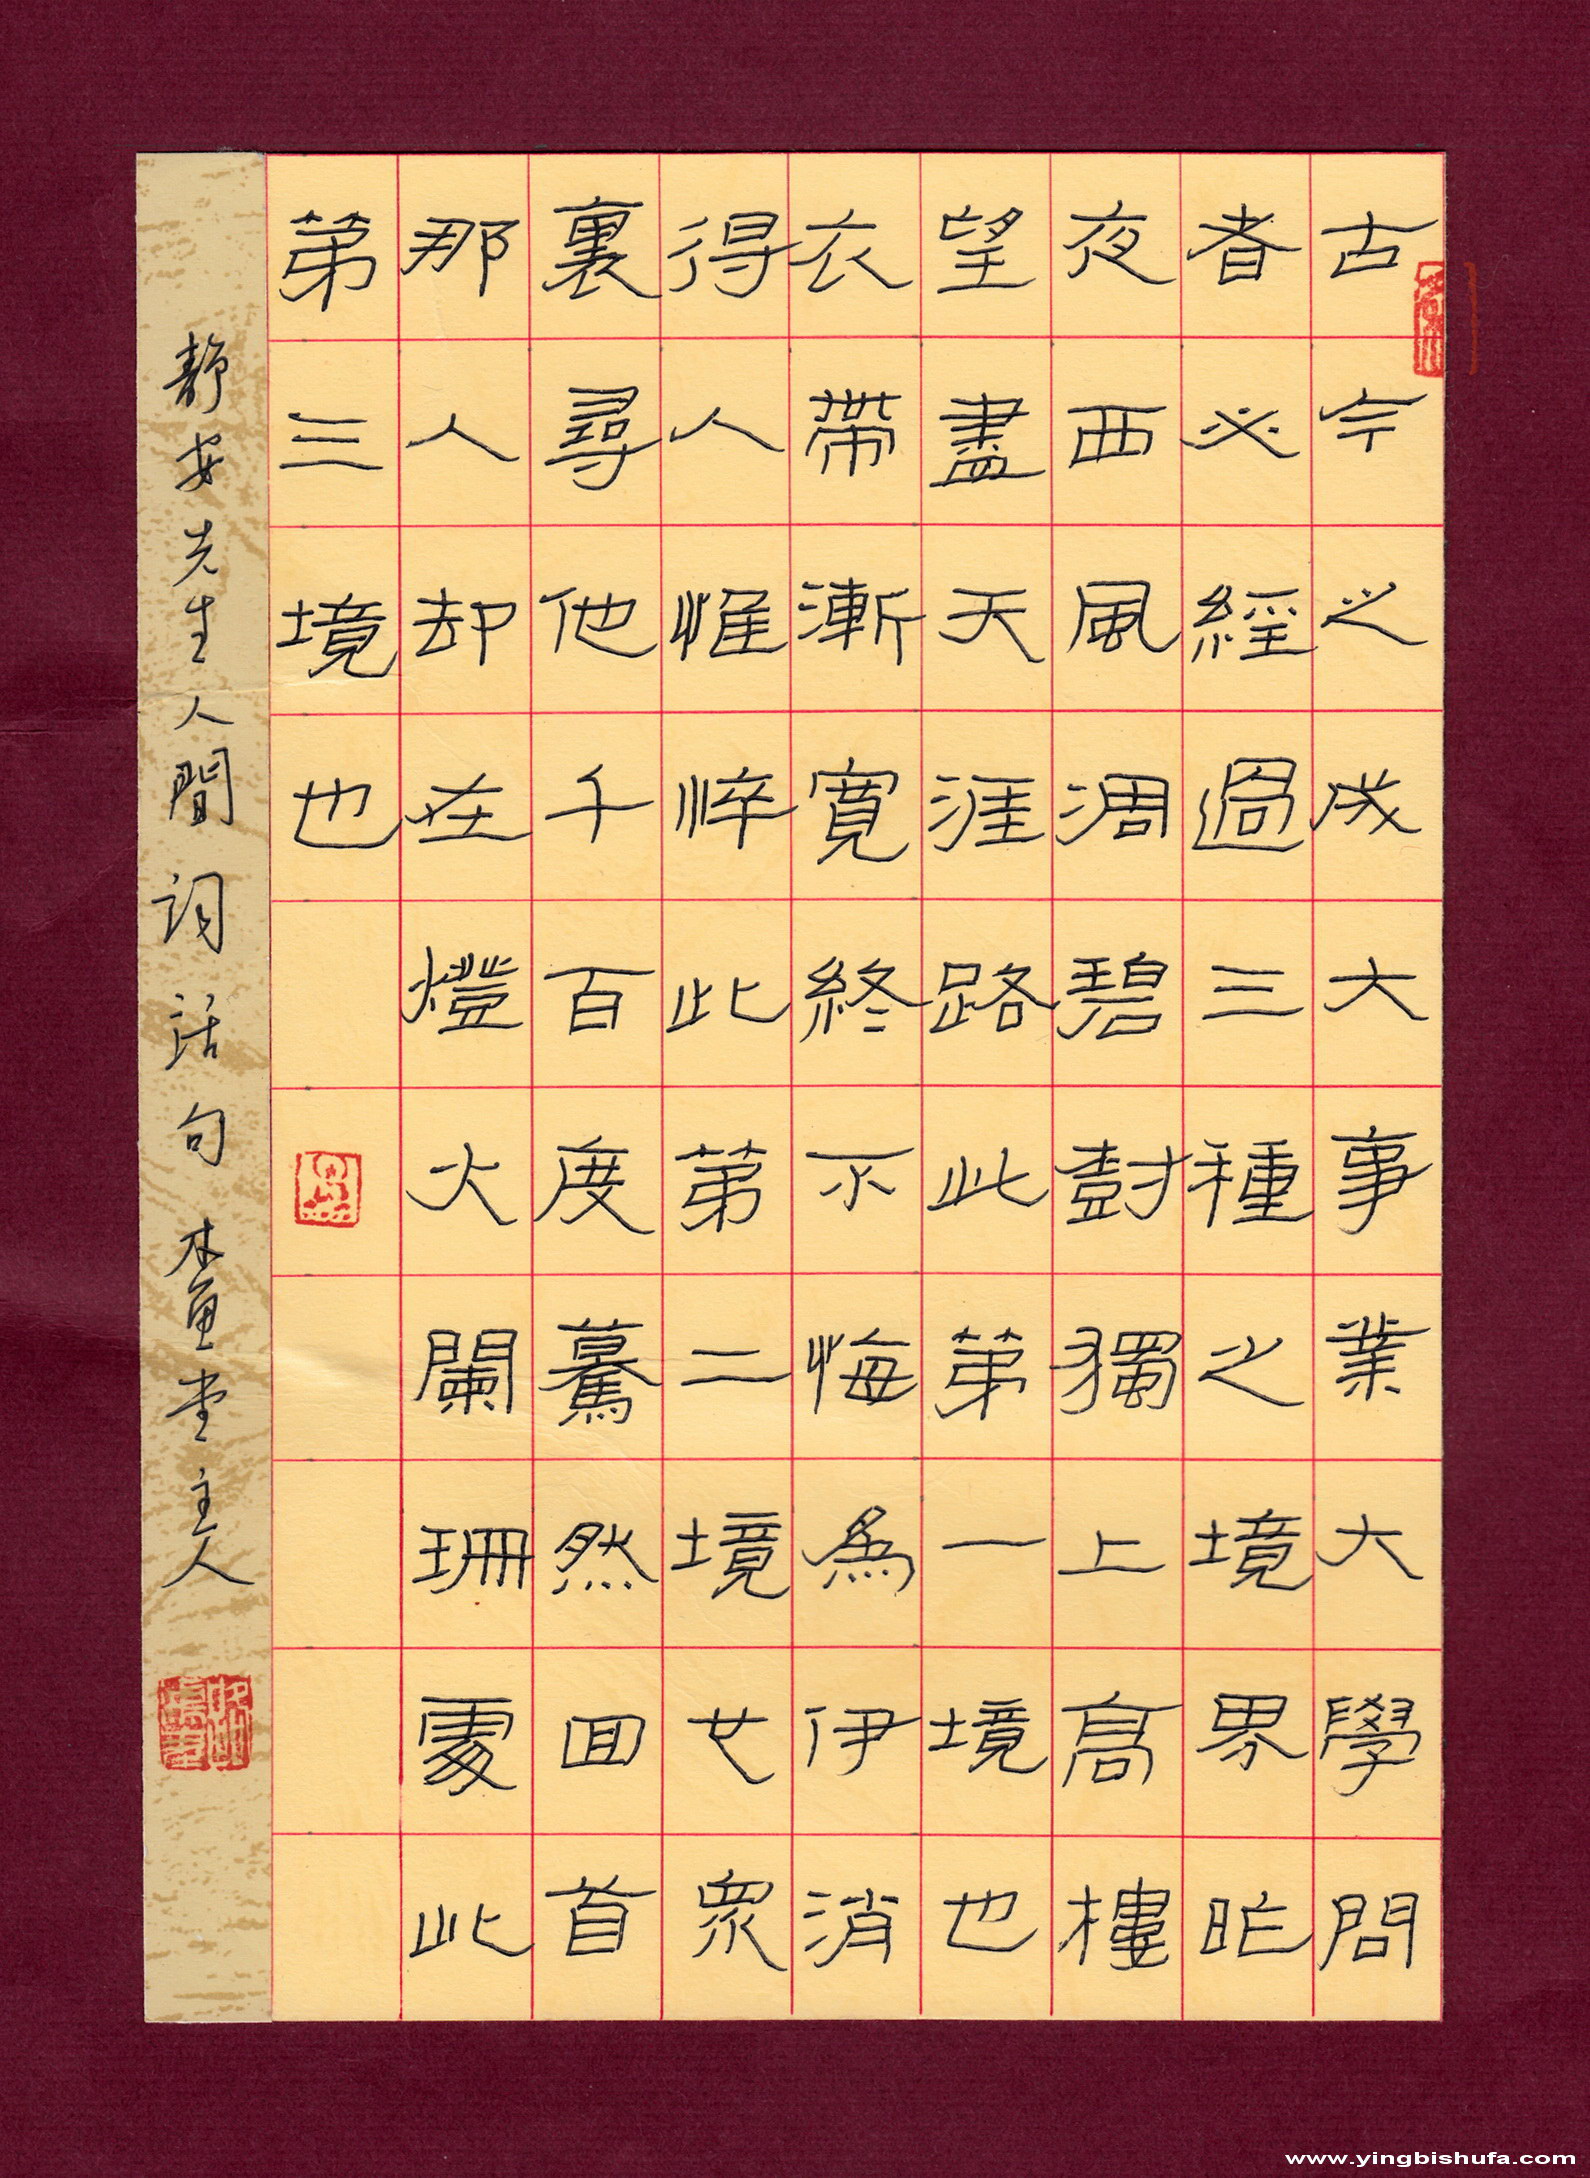 古今之成大事業大學問
者必經過三種之境界昨
夜西風凋碧尌獨上高樓
望盡天涯路此第一境也
衣帶漸寬終不悔為伊消
得人惟悴此第二境也衆
裏尋他千百度驀然回首
那人却在燈火闌珊處此
第三境也
靜安先生人間詞話句 本魚堂主人
www.yingbishufa.com